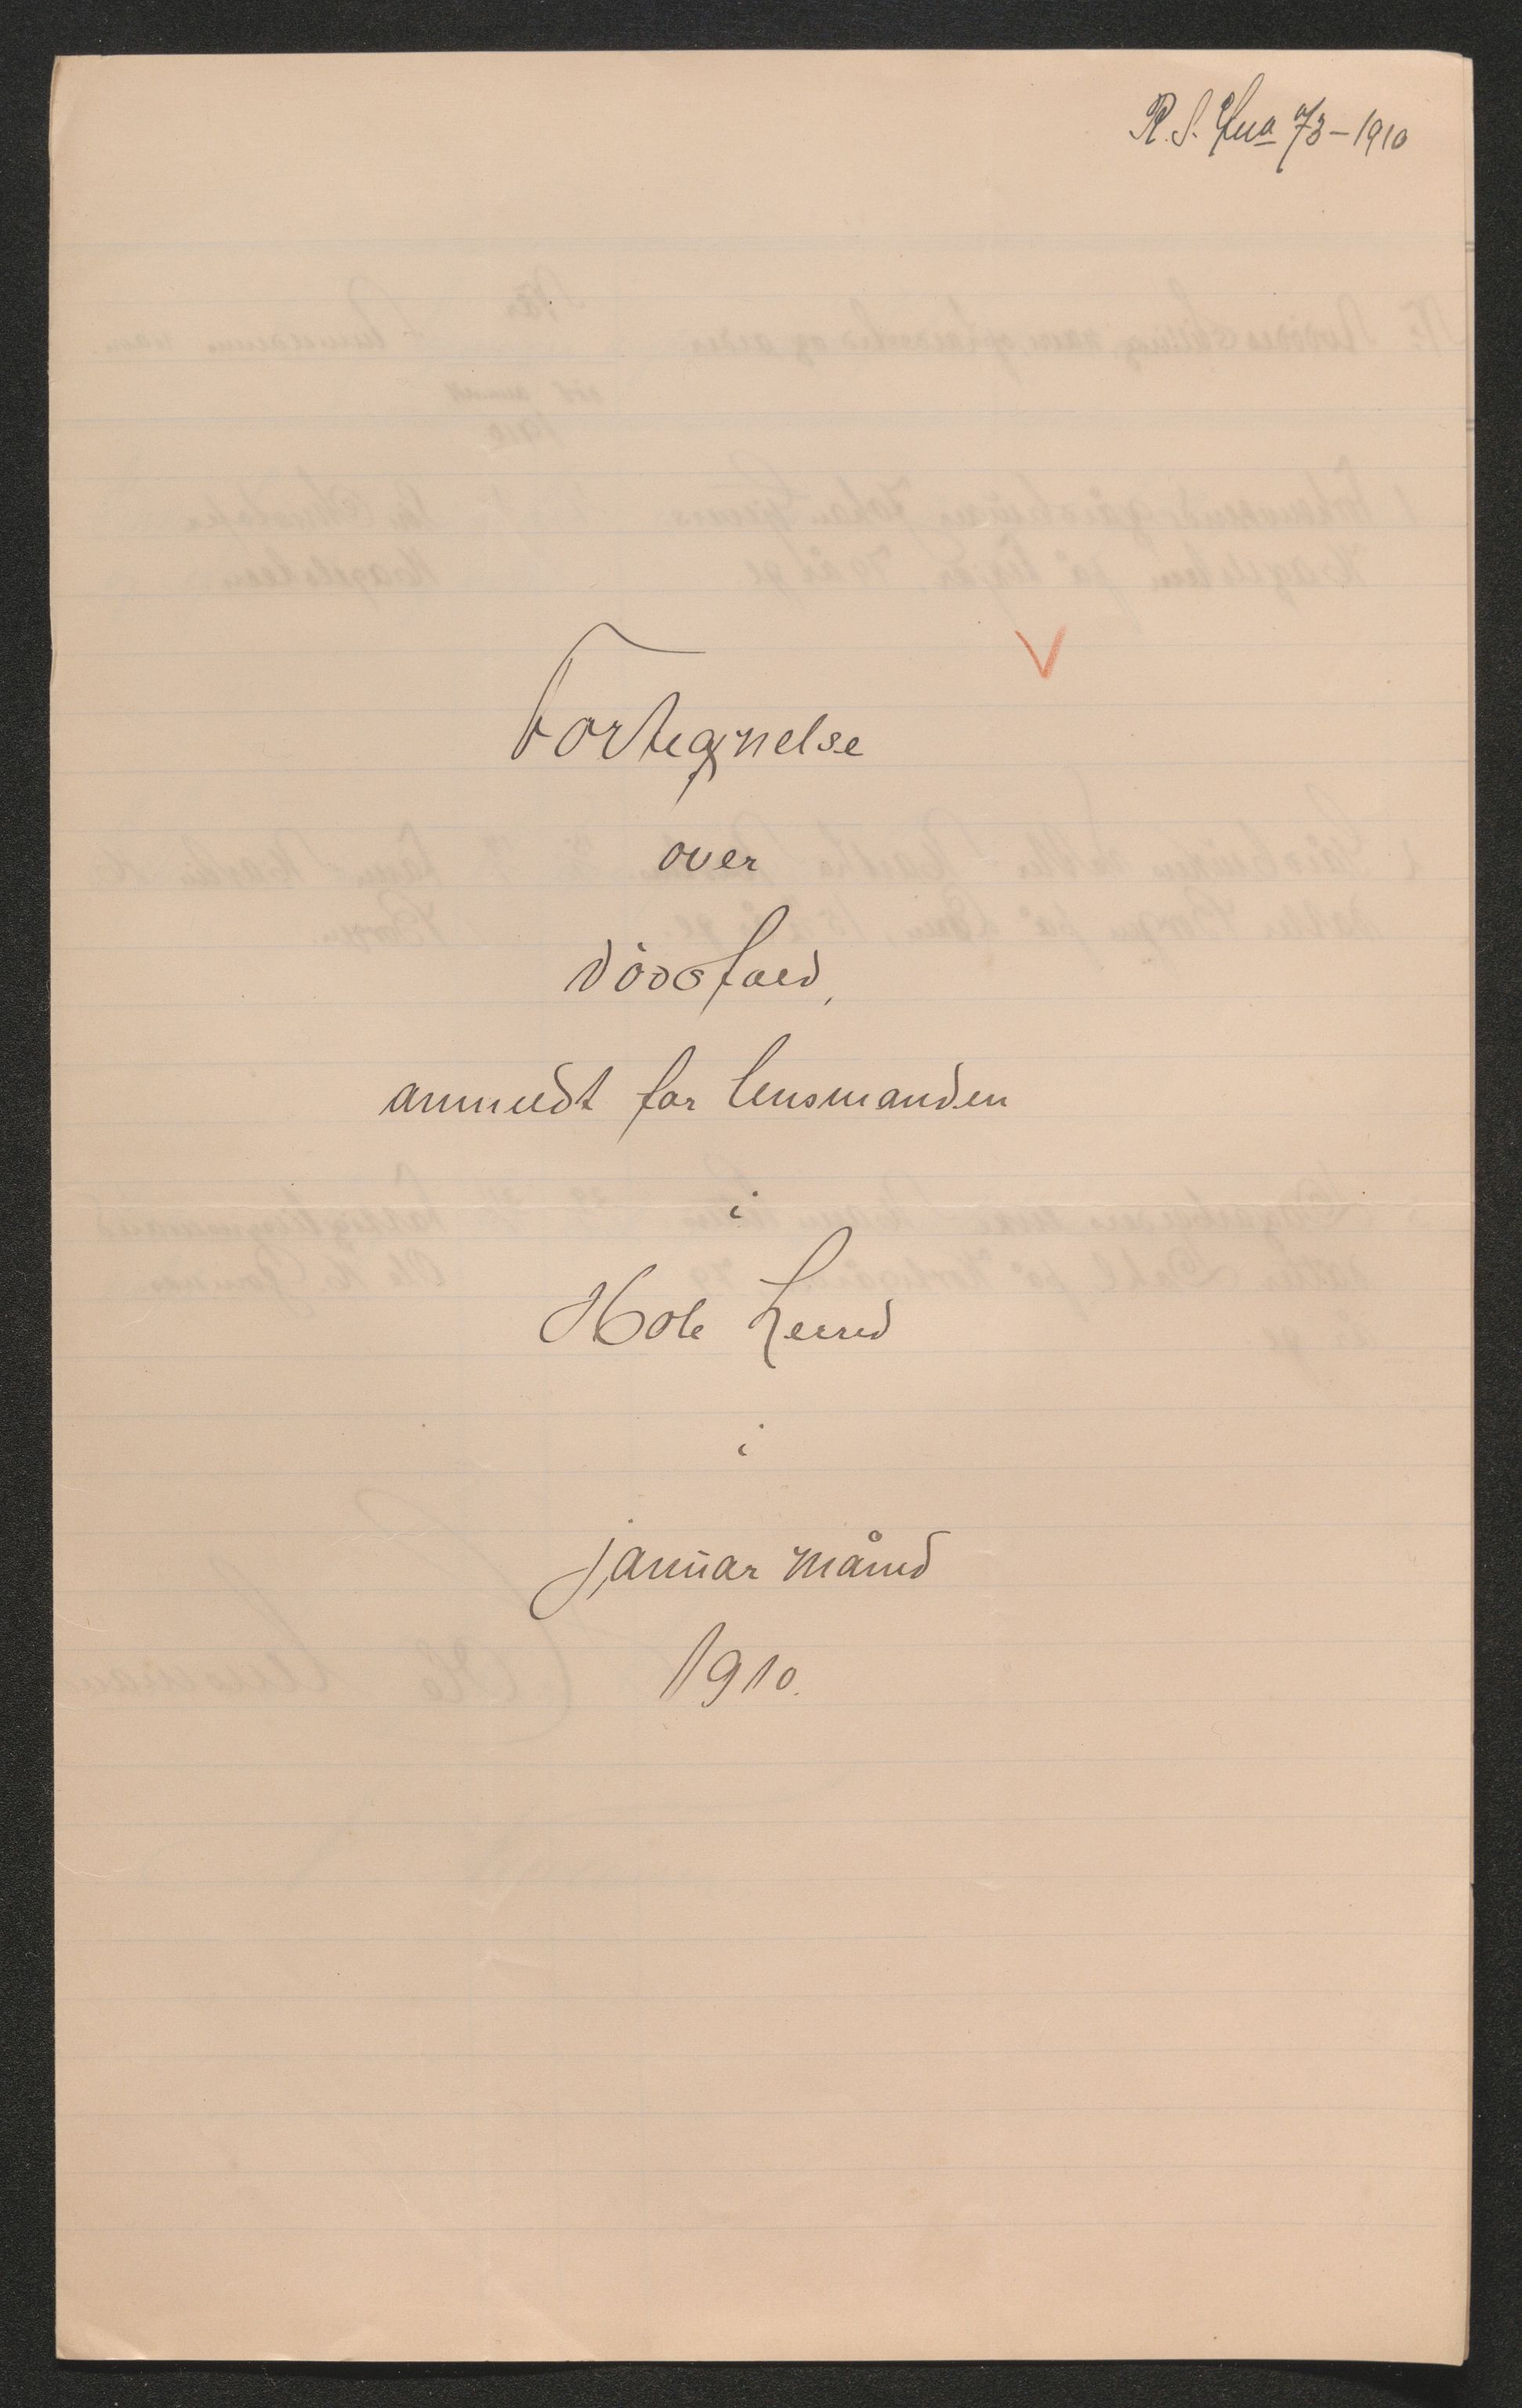 R. S. 7/3 – 1910
Fortegnelse
over
dödsfald,
anmeldt for lensmanden
i
Hole herred
i
januar måned
1910.